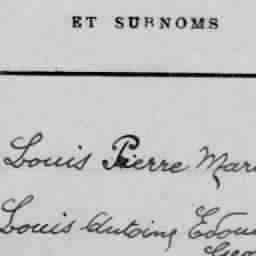 ET SURNOMS
Louis Pierre Mar
Louis Antoine Edou
Geo